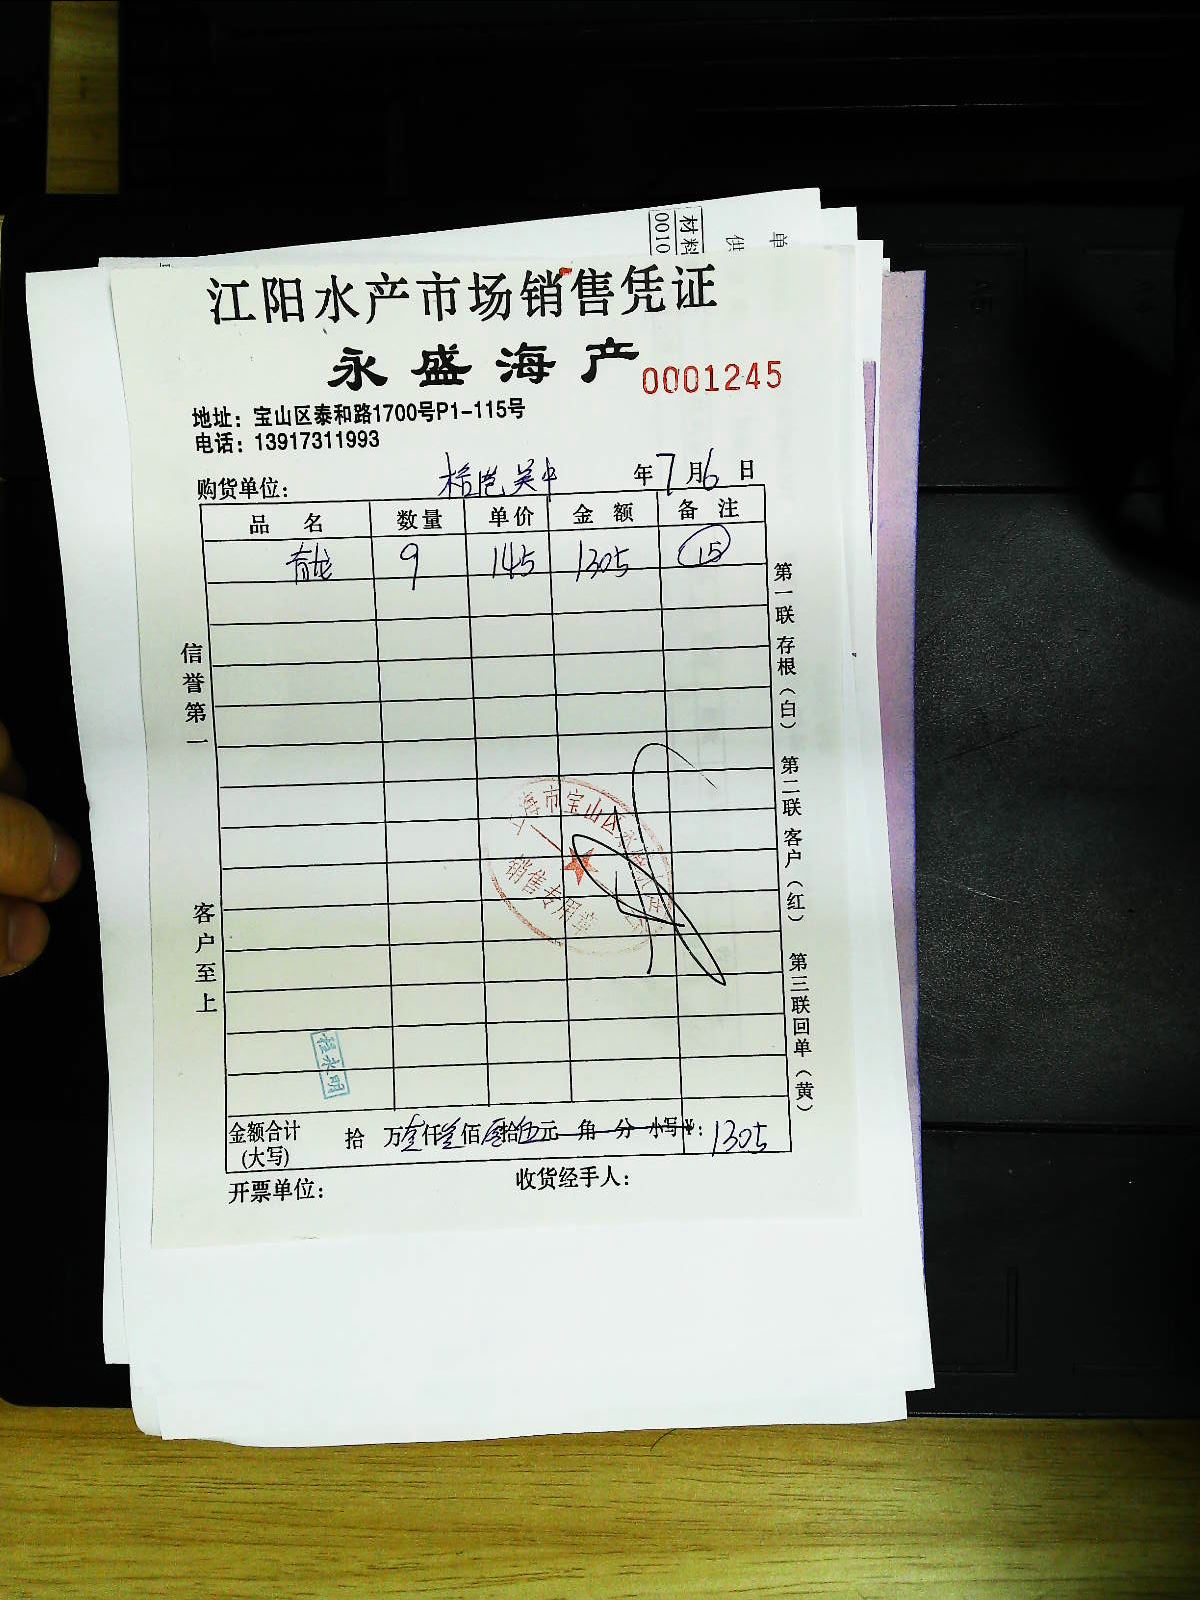 材料
0010
供
单
江阳水产市场销售凭证
永盛海产
0001245
地址：宝山区泰和路1700号P1-115号
电话：13917311993
购货单位： 年7月6日
品名 数量 单价 金额 备注
青龙 9 145 1305 15
信誉第一
客户至上
第一联存根（白） 第二联客户（红） 第三联回单（黄）
市宝山区
销售专用章
金额合计 拾 万壹仟叁佰零拾伍元 角 分 小写¥：1305
(大写)
开票单位： 收货经手人：